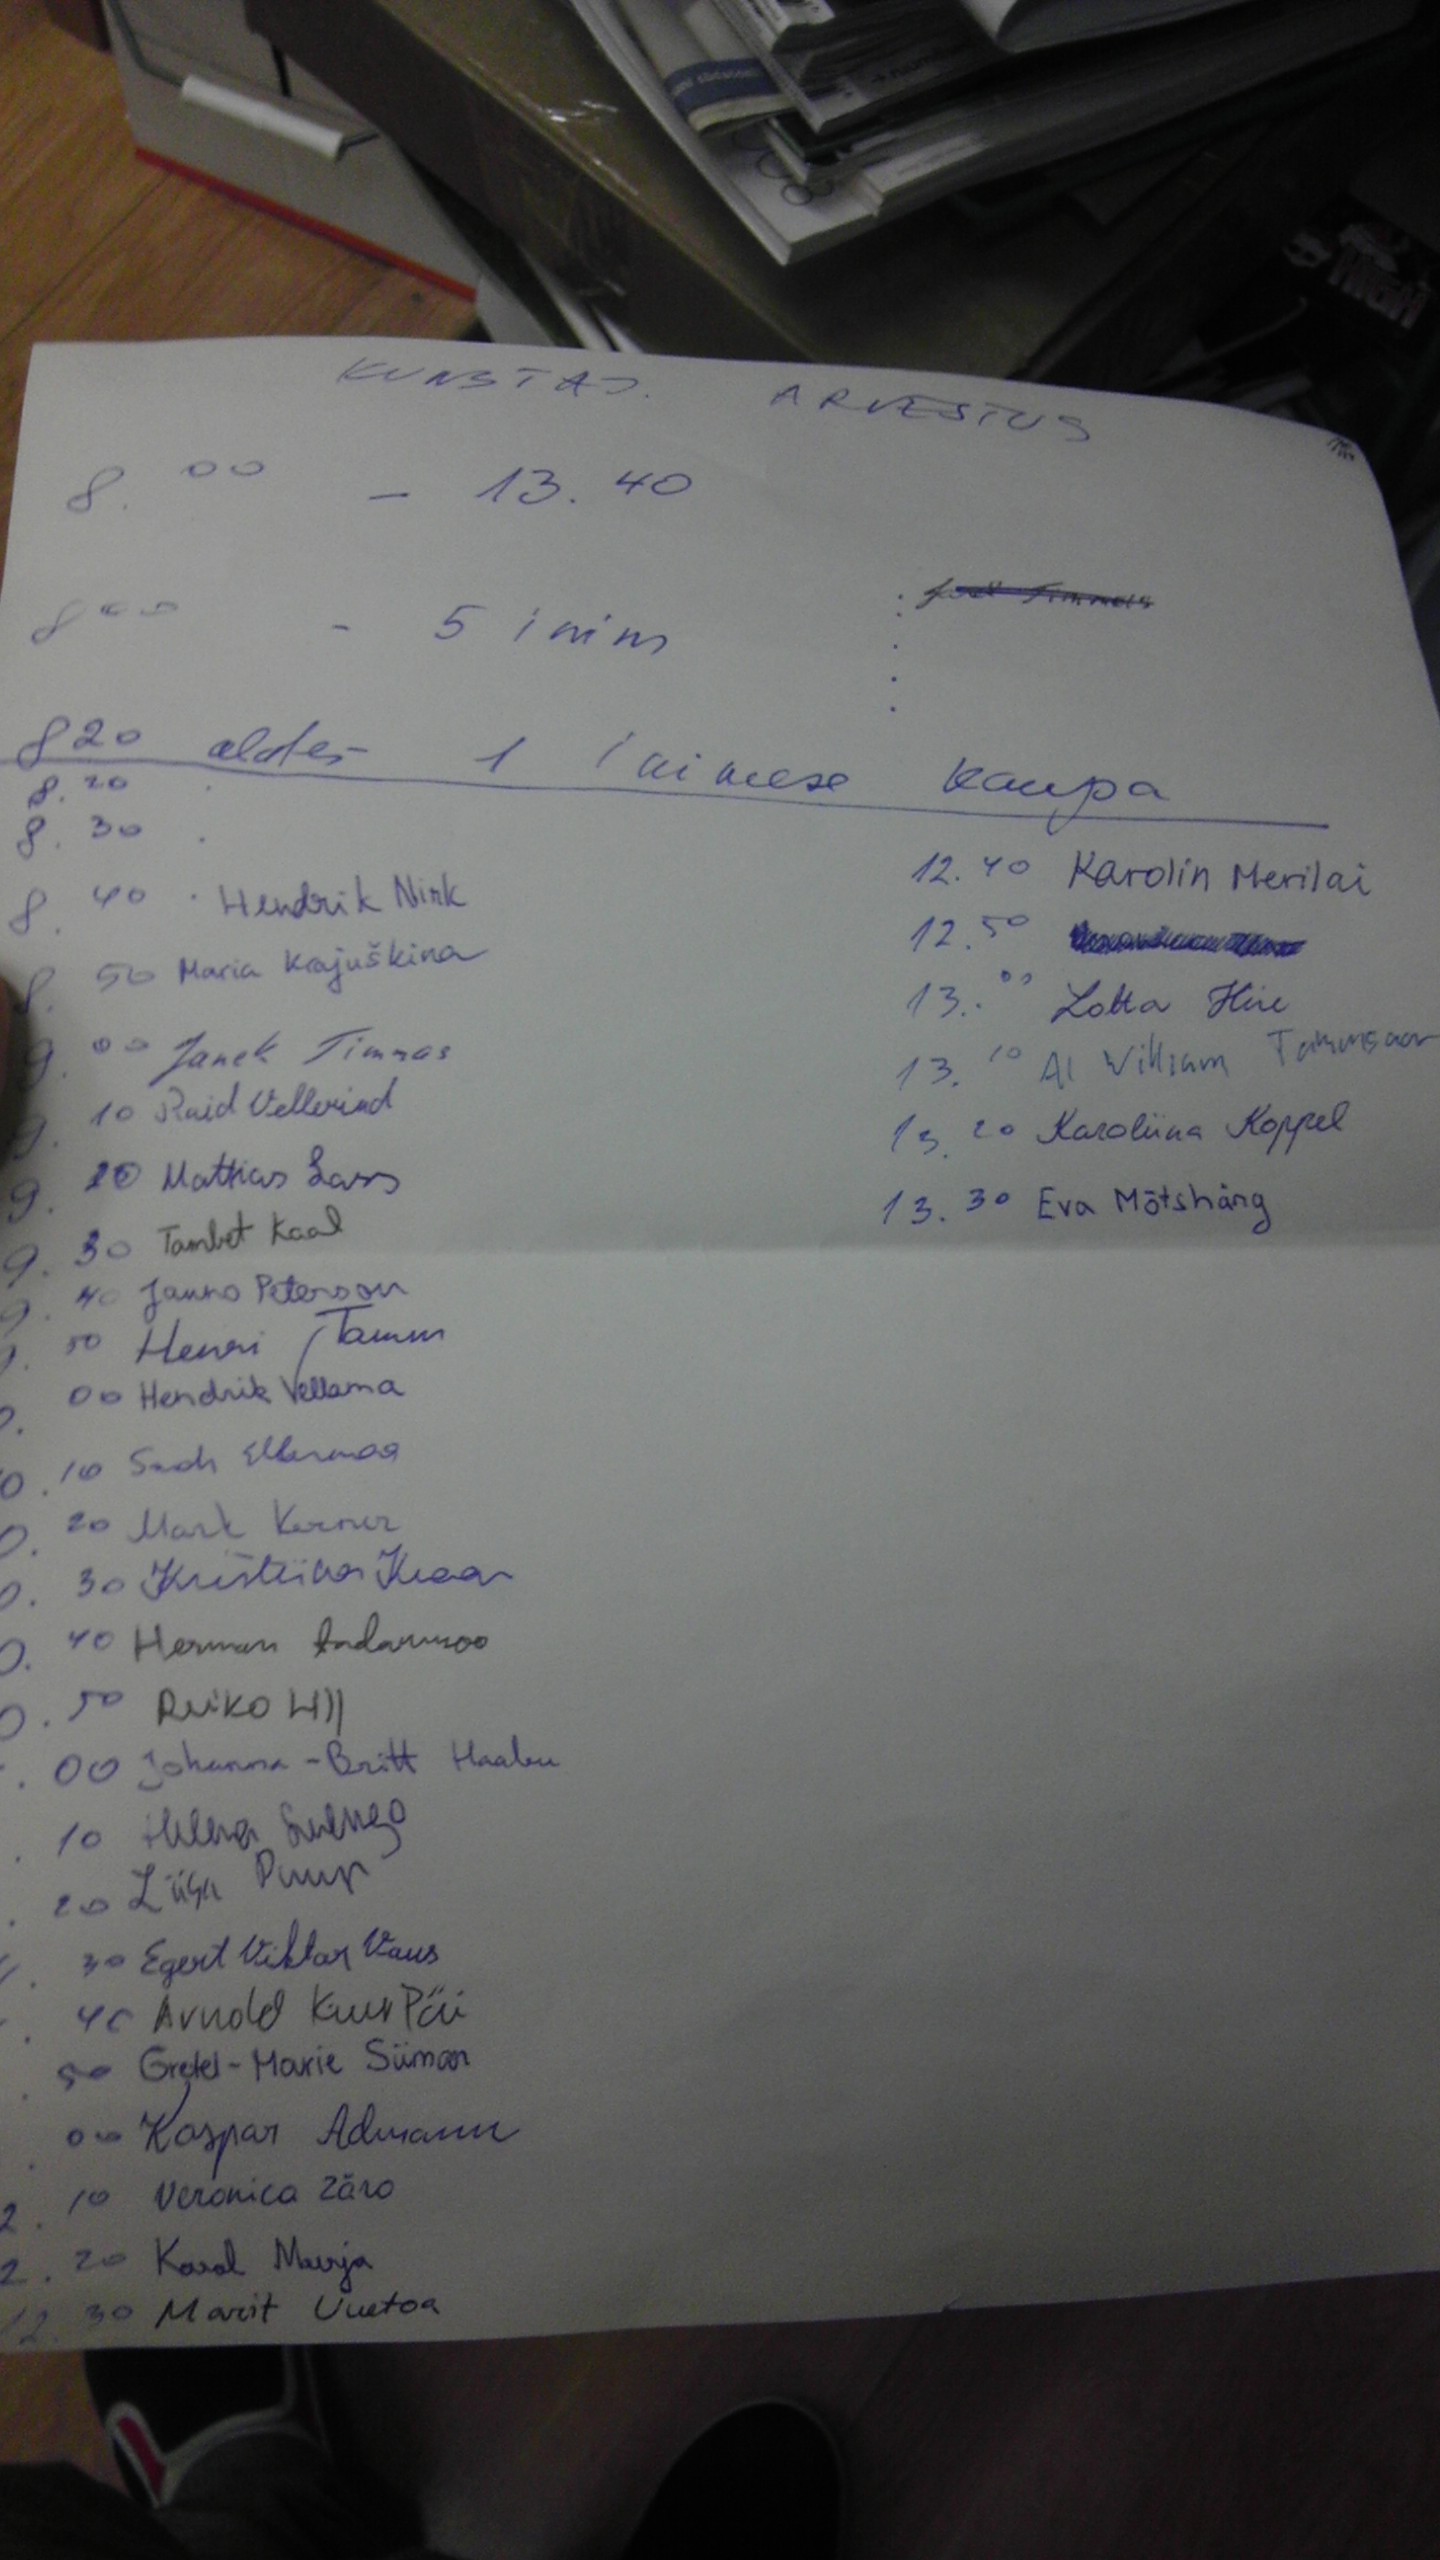 KUNSTAJ. ARVESTUS
8.00 - 13.40
8 00 - 5 inim
820 alates 1 inimese kaupa
8.20
8.30
8.40 Hendrik Nirk
8.50 Maria Krajuškina
9.00 Janek Timmas
9.10 Raid Vellerind
9.20 Mattias Lass
9.30 Tambet Kaal
9.40 Janno Peterson
9.50 Henri Tamm
00 Hendrik Vellama
0.10 Ellermaa
0.20 Mark Kerner
0.30 Kristiina
0.40 Herman
0.50 Reiko
00 Johanna-Britt
10 Helena
20 Liisa Puup
30 Egert Viktor Vaus
40 Arnold Kuus
50 Gretel-Marie Siiman
00 Kaspar Admann
2.10 Veronica Zäro
2.20 Karol Murja
12.30 Marit Uuetoa
12.40 Karolin Merilai
12.50
13.00 Lotta Hire
13.10 Al William Tammsaar
13.20 Karoliina Koppel
13.30 Eva Mõtshärg